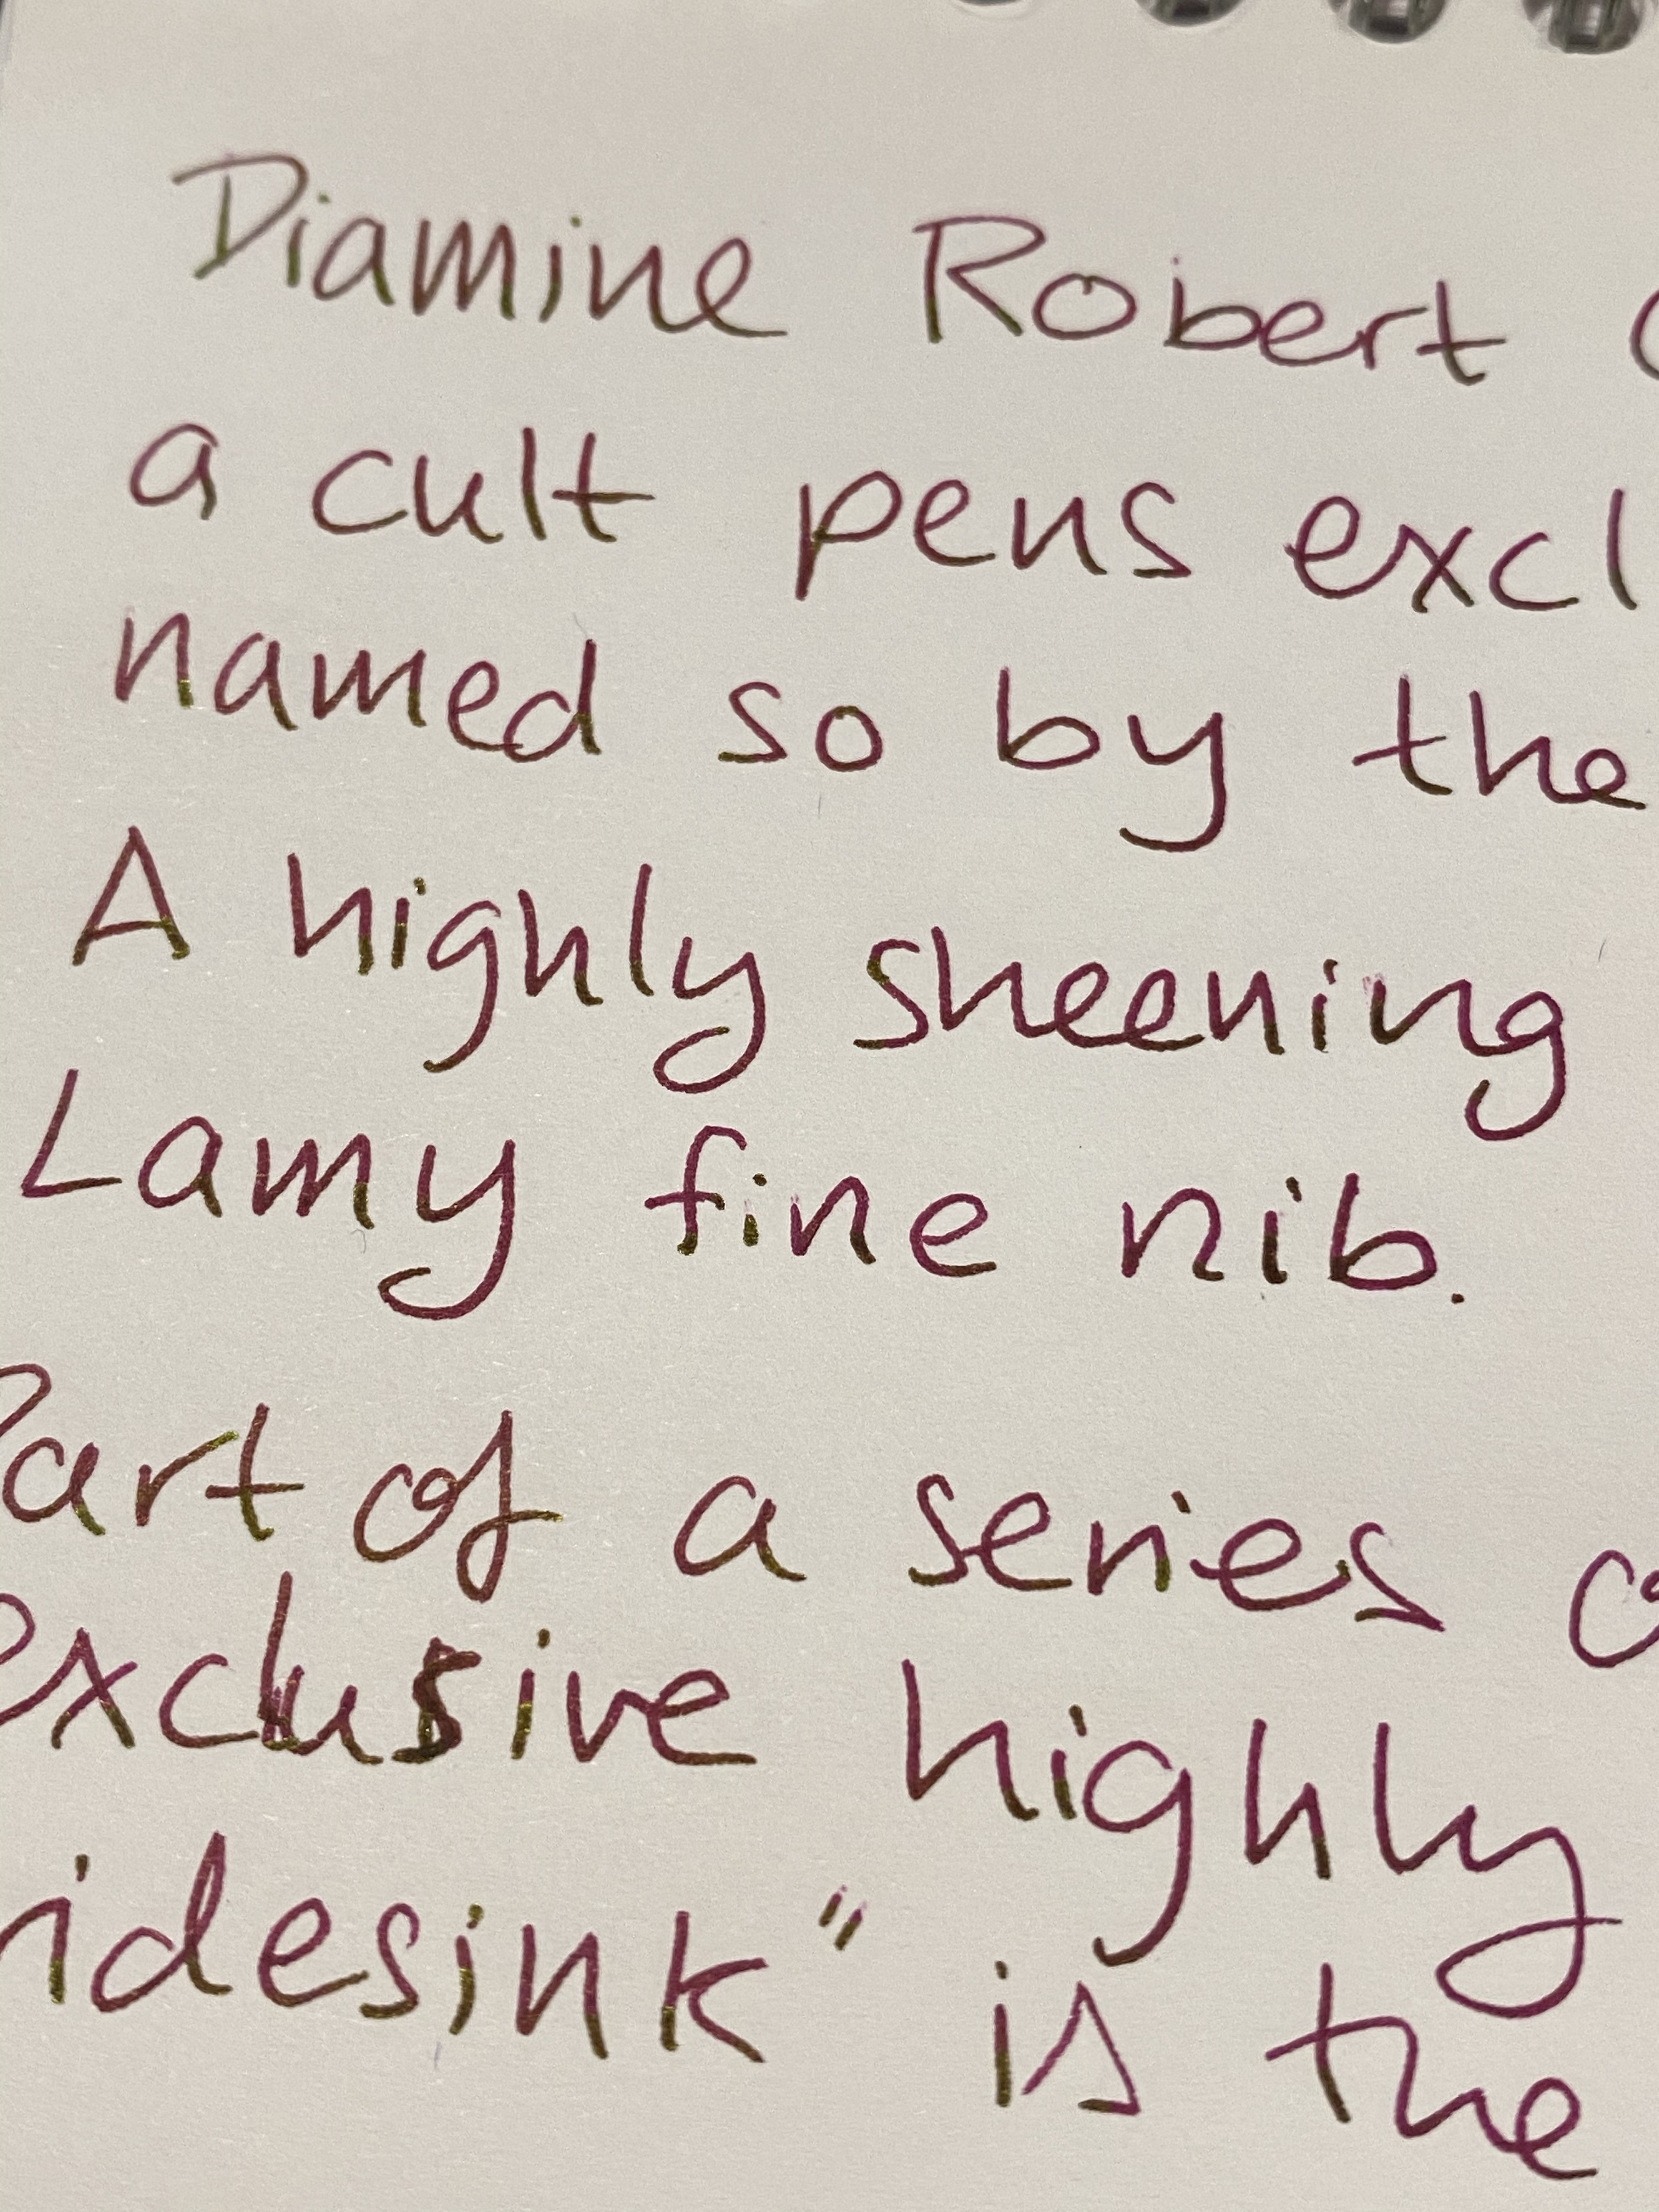 Diamine Robert
a cult pens excl
named so by the
A highly sheening
Lamy fine nib.
Part of a series
exclusive highly
ridesink" is the